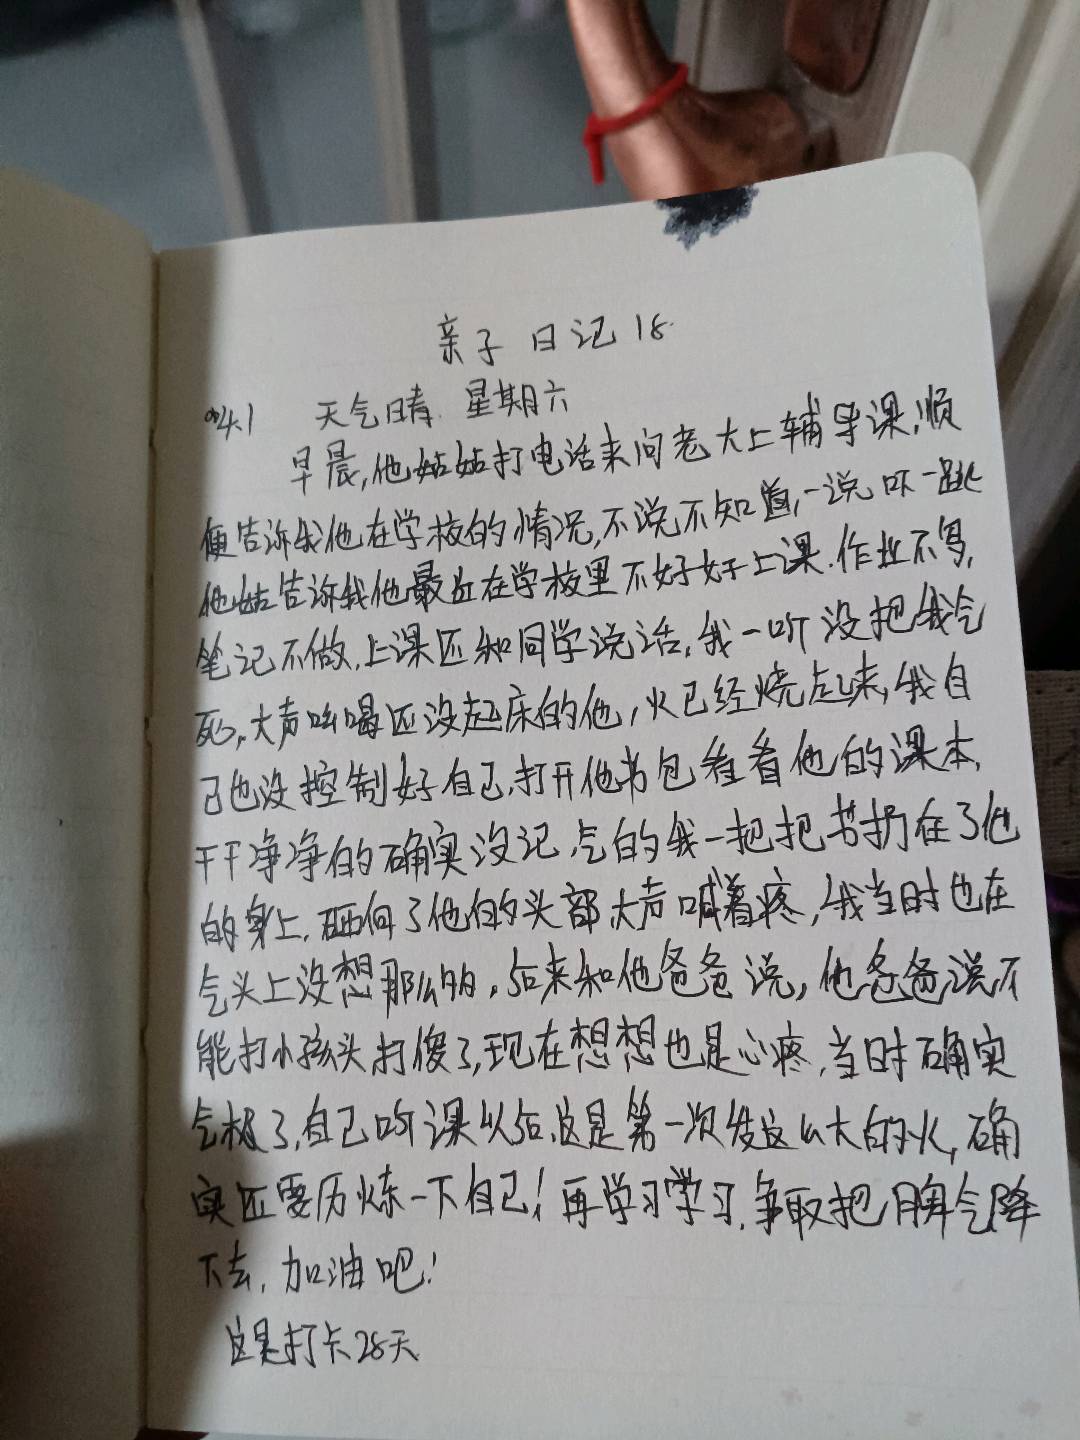 亲子日记18.
4.1 天气晴. 星期六
早晨,他姑姑打电话来问老大上辅导课,顺
便告诉我他在学校的情况,不说不知道,一说吓一跳
他姑告诉我他最近在学校里不好好上课.作业不写,
笔记不做,上课还和同学说话,我一听没把我气
死,大声吆喝还没起床的他,火已经烧起来,我自
己也没控制好自己,打开他书包看看他的课本,
干干净净的确实没记,气的我一把把书扔在了他
的身上,砸向了他的头部大声喊着疼,我当时也在
气头上没想那么多,后来和他爸爸说,他爸爸说不
能打小孩头打傻了,现在想想也是心疼,当时确实
气极了,自己听课以后,这是第一次发这么大的火,确
实还要历炼一下自己!再学习学习,争取把脾气降
下去,加油吧!
这是打卡28天